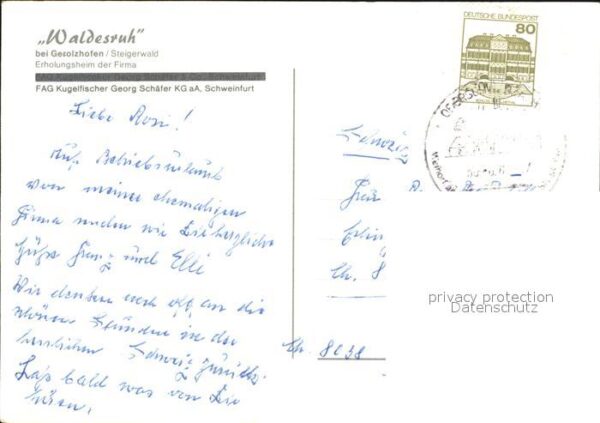 „Waldesruh"
bei Gerolzhofen / Steigerwald
Erholungsheim der Firma
FAG Kugelfischer Georg Schäfer & Co., Schweinfurt
FAG Kugelfischer Georg Schäfer KG aA, Schweinfurt
DEUTSCHE BUNDESPOST
80
Liebe Rosi!
Aus Betriebsurlaub
von meiner ehemaligen
Firma senden wir Dir herzliche
Grüße Franz und Elli
Wir denken noch oft an die
schönen Stunden in der
herrlichen Schweiz zurück.
Laß bald was von Dir
hören.
Schweiz
Frau
Ch. 8
Ch. 8038
privacy protection
Datenschutz